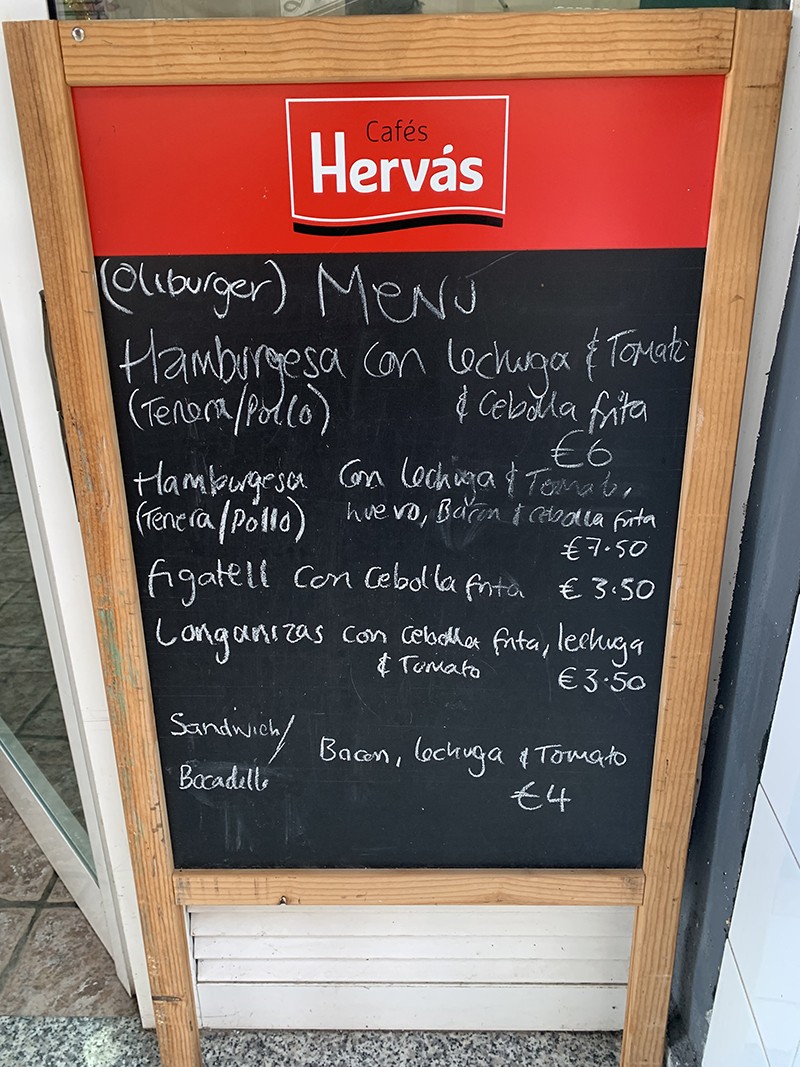 Cafés
Hervás
(Oliburger) Menu
Hamburgesa con lechuga & Tomato
(Tenera/Pollo) & Cebolla frita
€6
Hamburgesa con lechuga & Tomato,
(Tenera/Pollo) huevo, Bacon & cebolla frita
€7.50
figatell con Cebolla frita €3.50
Longanizas con cebolla frita, lechuga
& Tomato €3.50
Sandwich/
Bocadillo Bacon, lechuga & Tomato
€4